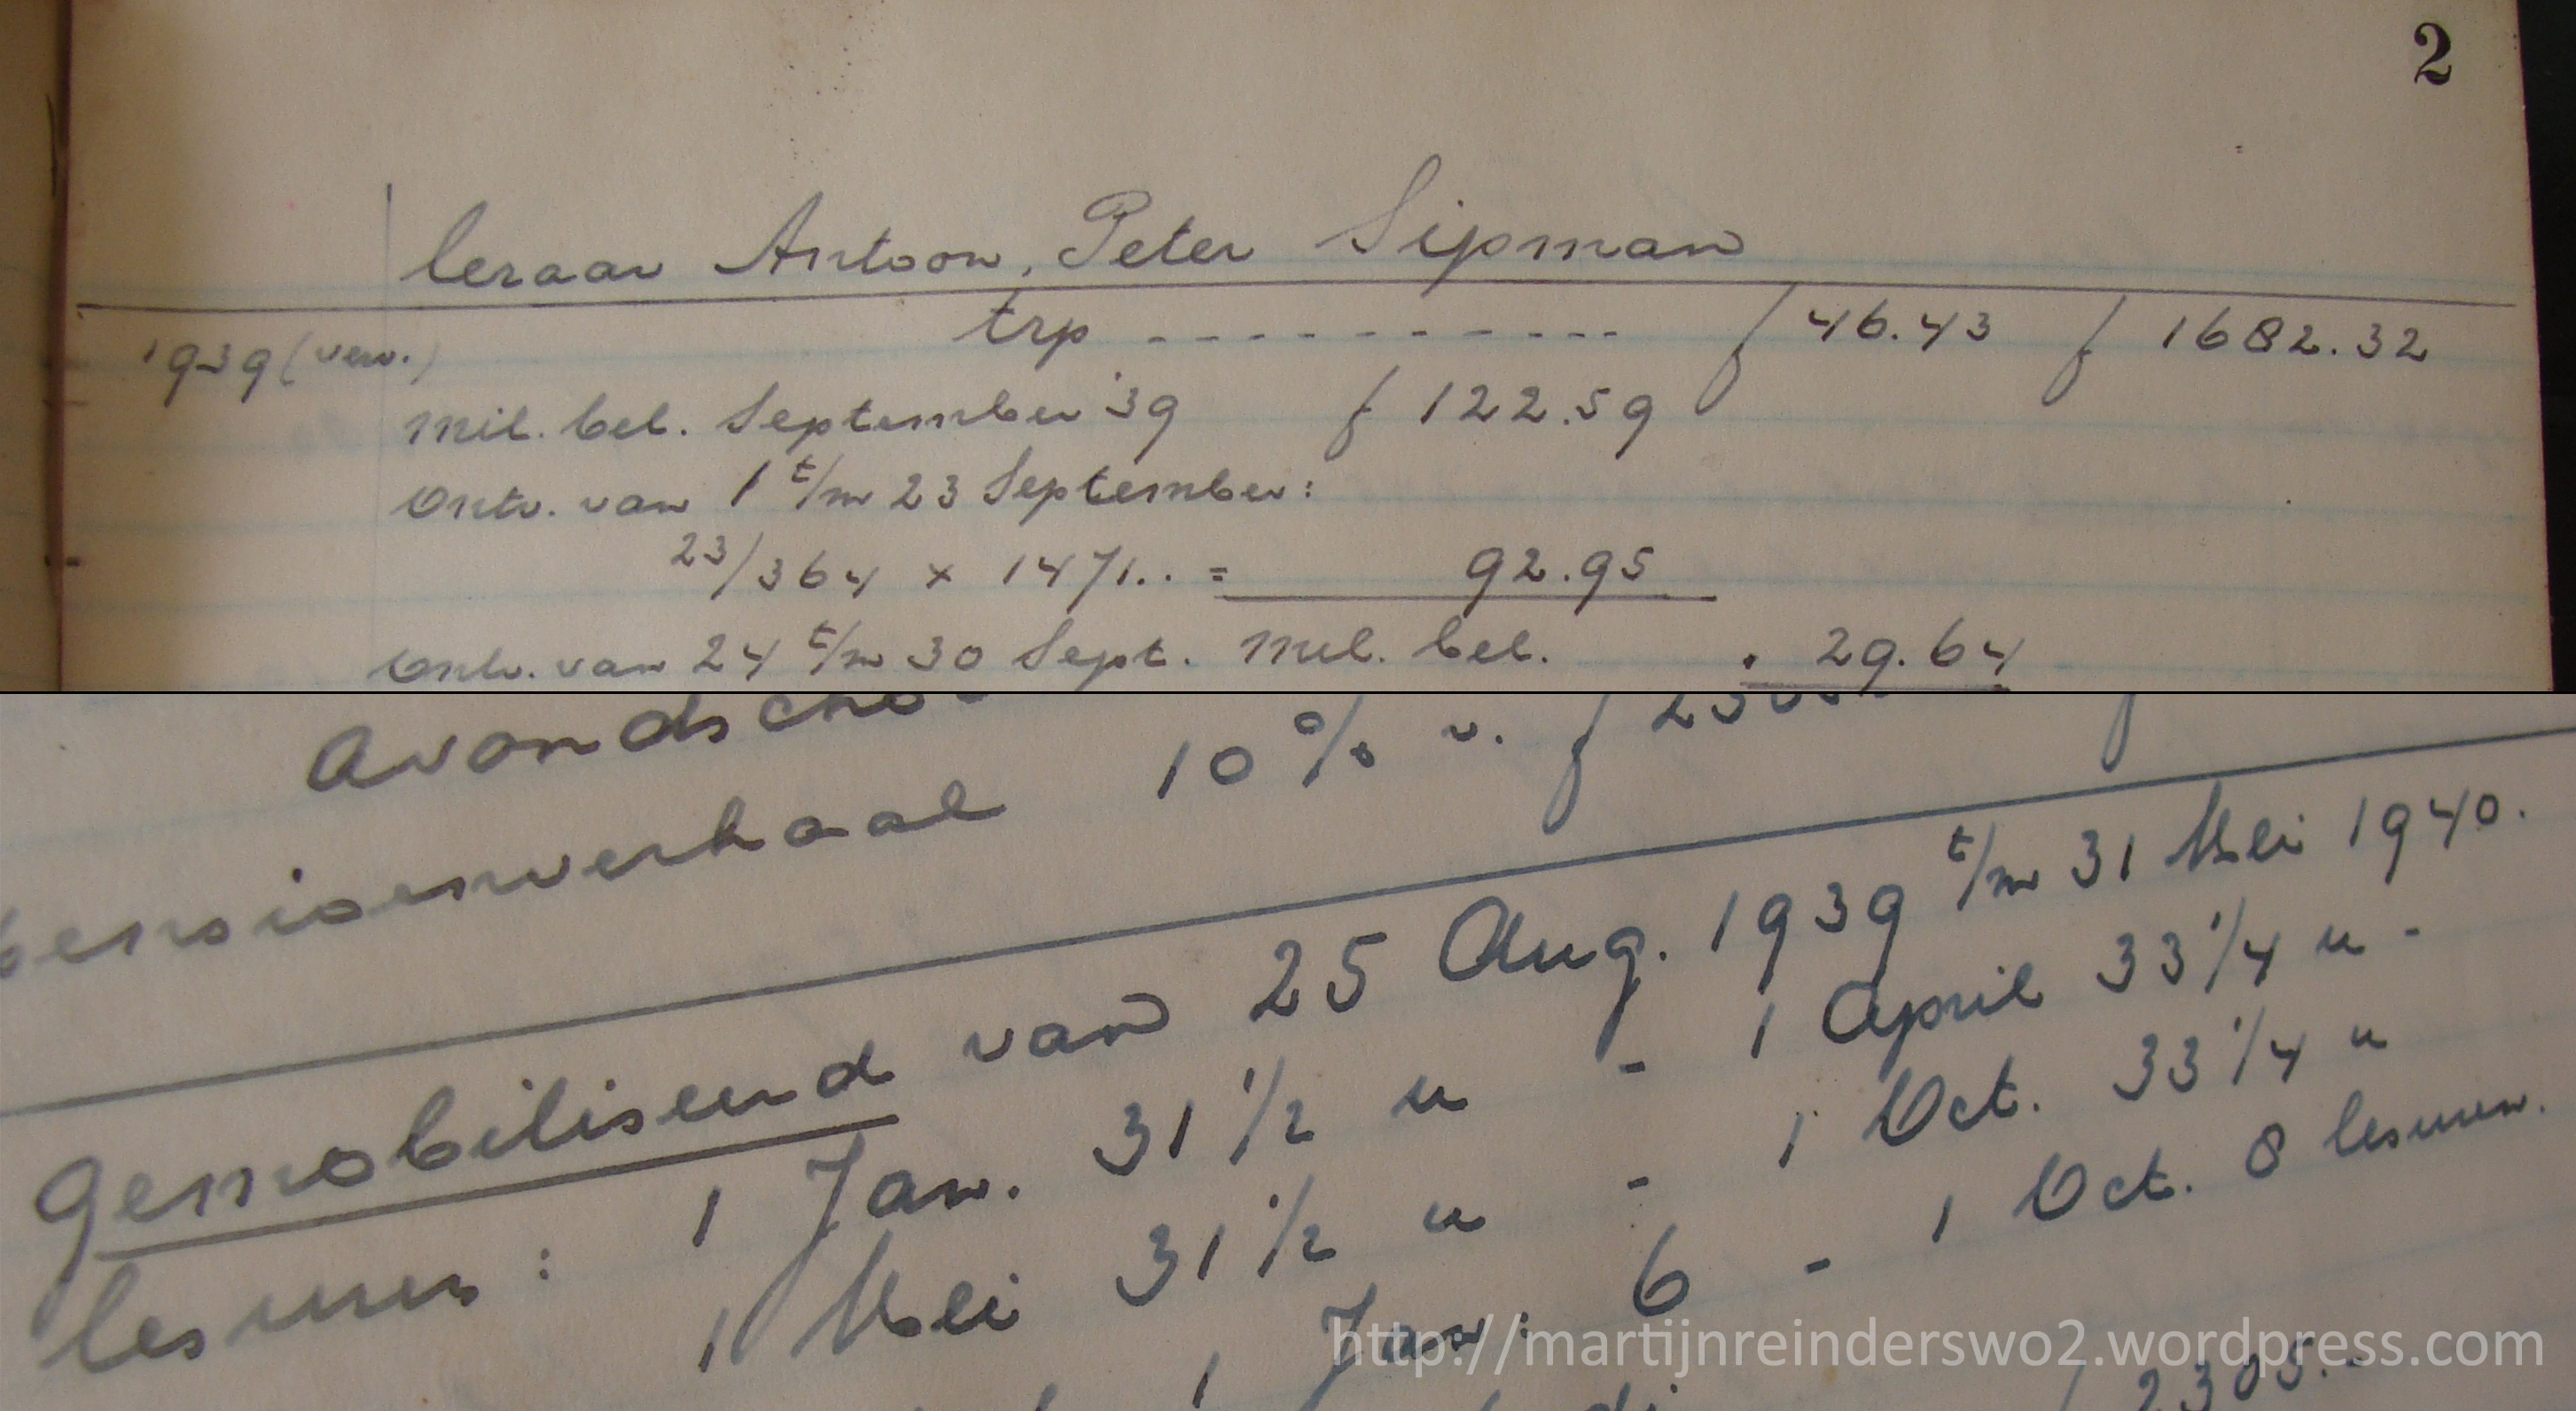 2
leraar Antoon, Peter Sipman
1939 (verv.) trp - - - - - - - - - - - ƒ 46.43 ƒ 1682.32
mil. bel. September '39 ƒ 122.59
Ontv. van 1 t/m 23 September:
23/364 x 1471.. = 92.95
Ontv. van 24 t/m 30 Sept. mil. bel. . 29.64
pensioenverhaal 10% v. ƒ
Gemobiliseerd van 25 Aug. 1939 t/m 31 Mei 1940.
lesuren: 1 Jan. 31 1/2 u - 1 April 33 1/4 u -
1 Mei 31 1/2 u - 1 Oct. 33 1/4 u
1 Jan: 6 - 1 Oct. 8 lesuren.
2305.-
http://martijnreinderswo2.wordpress.com